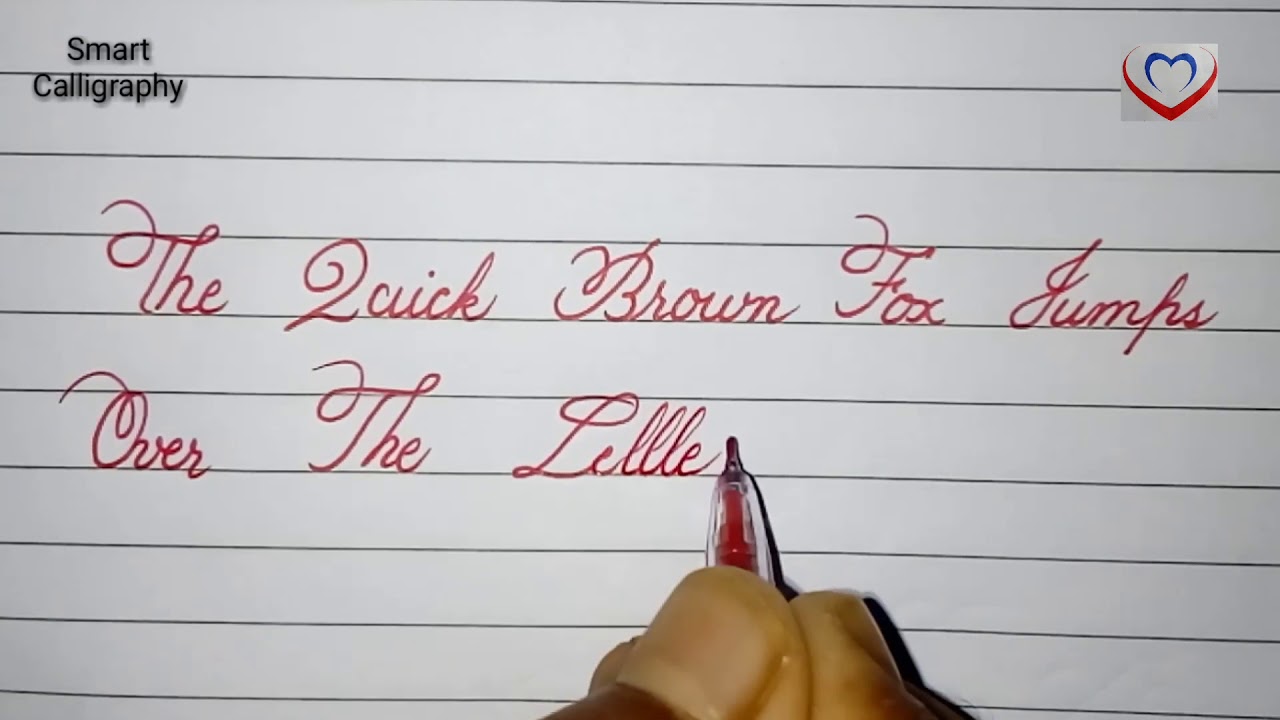 Smart
Calligraphy
The Quick Brown Fox Jumps
Over The Lellle